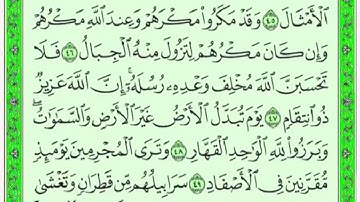 ٱلْأَمْثَالَ ٤٥ وَقَدْ مَكَرُوا۟ مَكْرَهُمْ وَعِندَ ٱللَّهِ مَكْرُهُمْ
وَإِن كَانَ مَكْرُهُمْ لِتَزُولَ مِنْهُ ٱلْجِبَالُ ٤٦ فَلَا
تَحْسَبَنَّ ٱللَّهَ مُخْلِفَ وَعْدِهِۦ رُسُلَهُۥٓ إِنَّ ٱللَّهَ عَزِيزٌ
ذُو ٱنتِقَامٍ ٤٧ يَوْمَ تُبَدَّلُ ٱلْأَرْضُ غَيْرَ ٱلْأَرْضِ وَٱلسَّمَٰوَٰتُ
وَبَرَزُوا۟ لِلَّهِ ٱلْوَٰحِدِ ٱلْقَهَّارِ ٤٨ وَتَرَى ٱلْمُجْرِمِينَ يَوْمَئِذٍ
مُّقَرَّنِينَ فِى ٱلْأَصْفَادِ ٤٩ سَرَابِيلُهُم مِّن قَطِرَانٍ وَتَغْشَىٰ